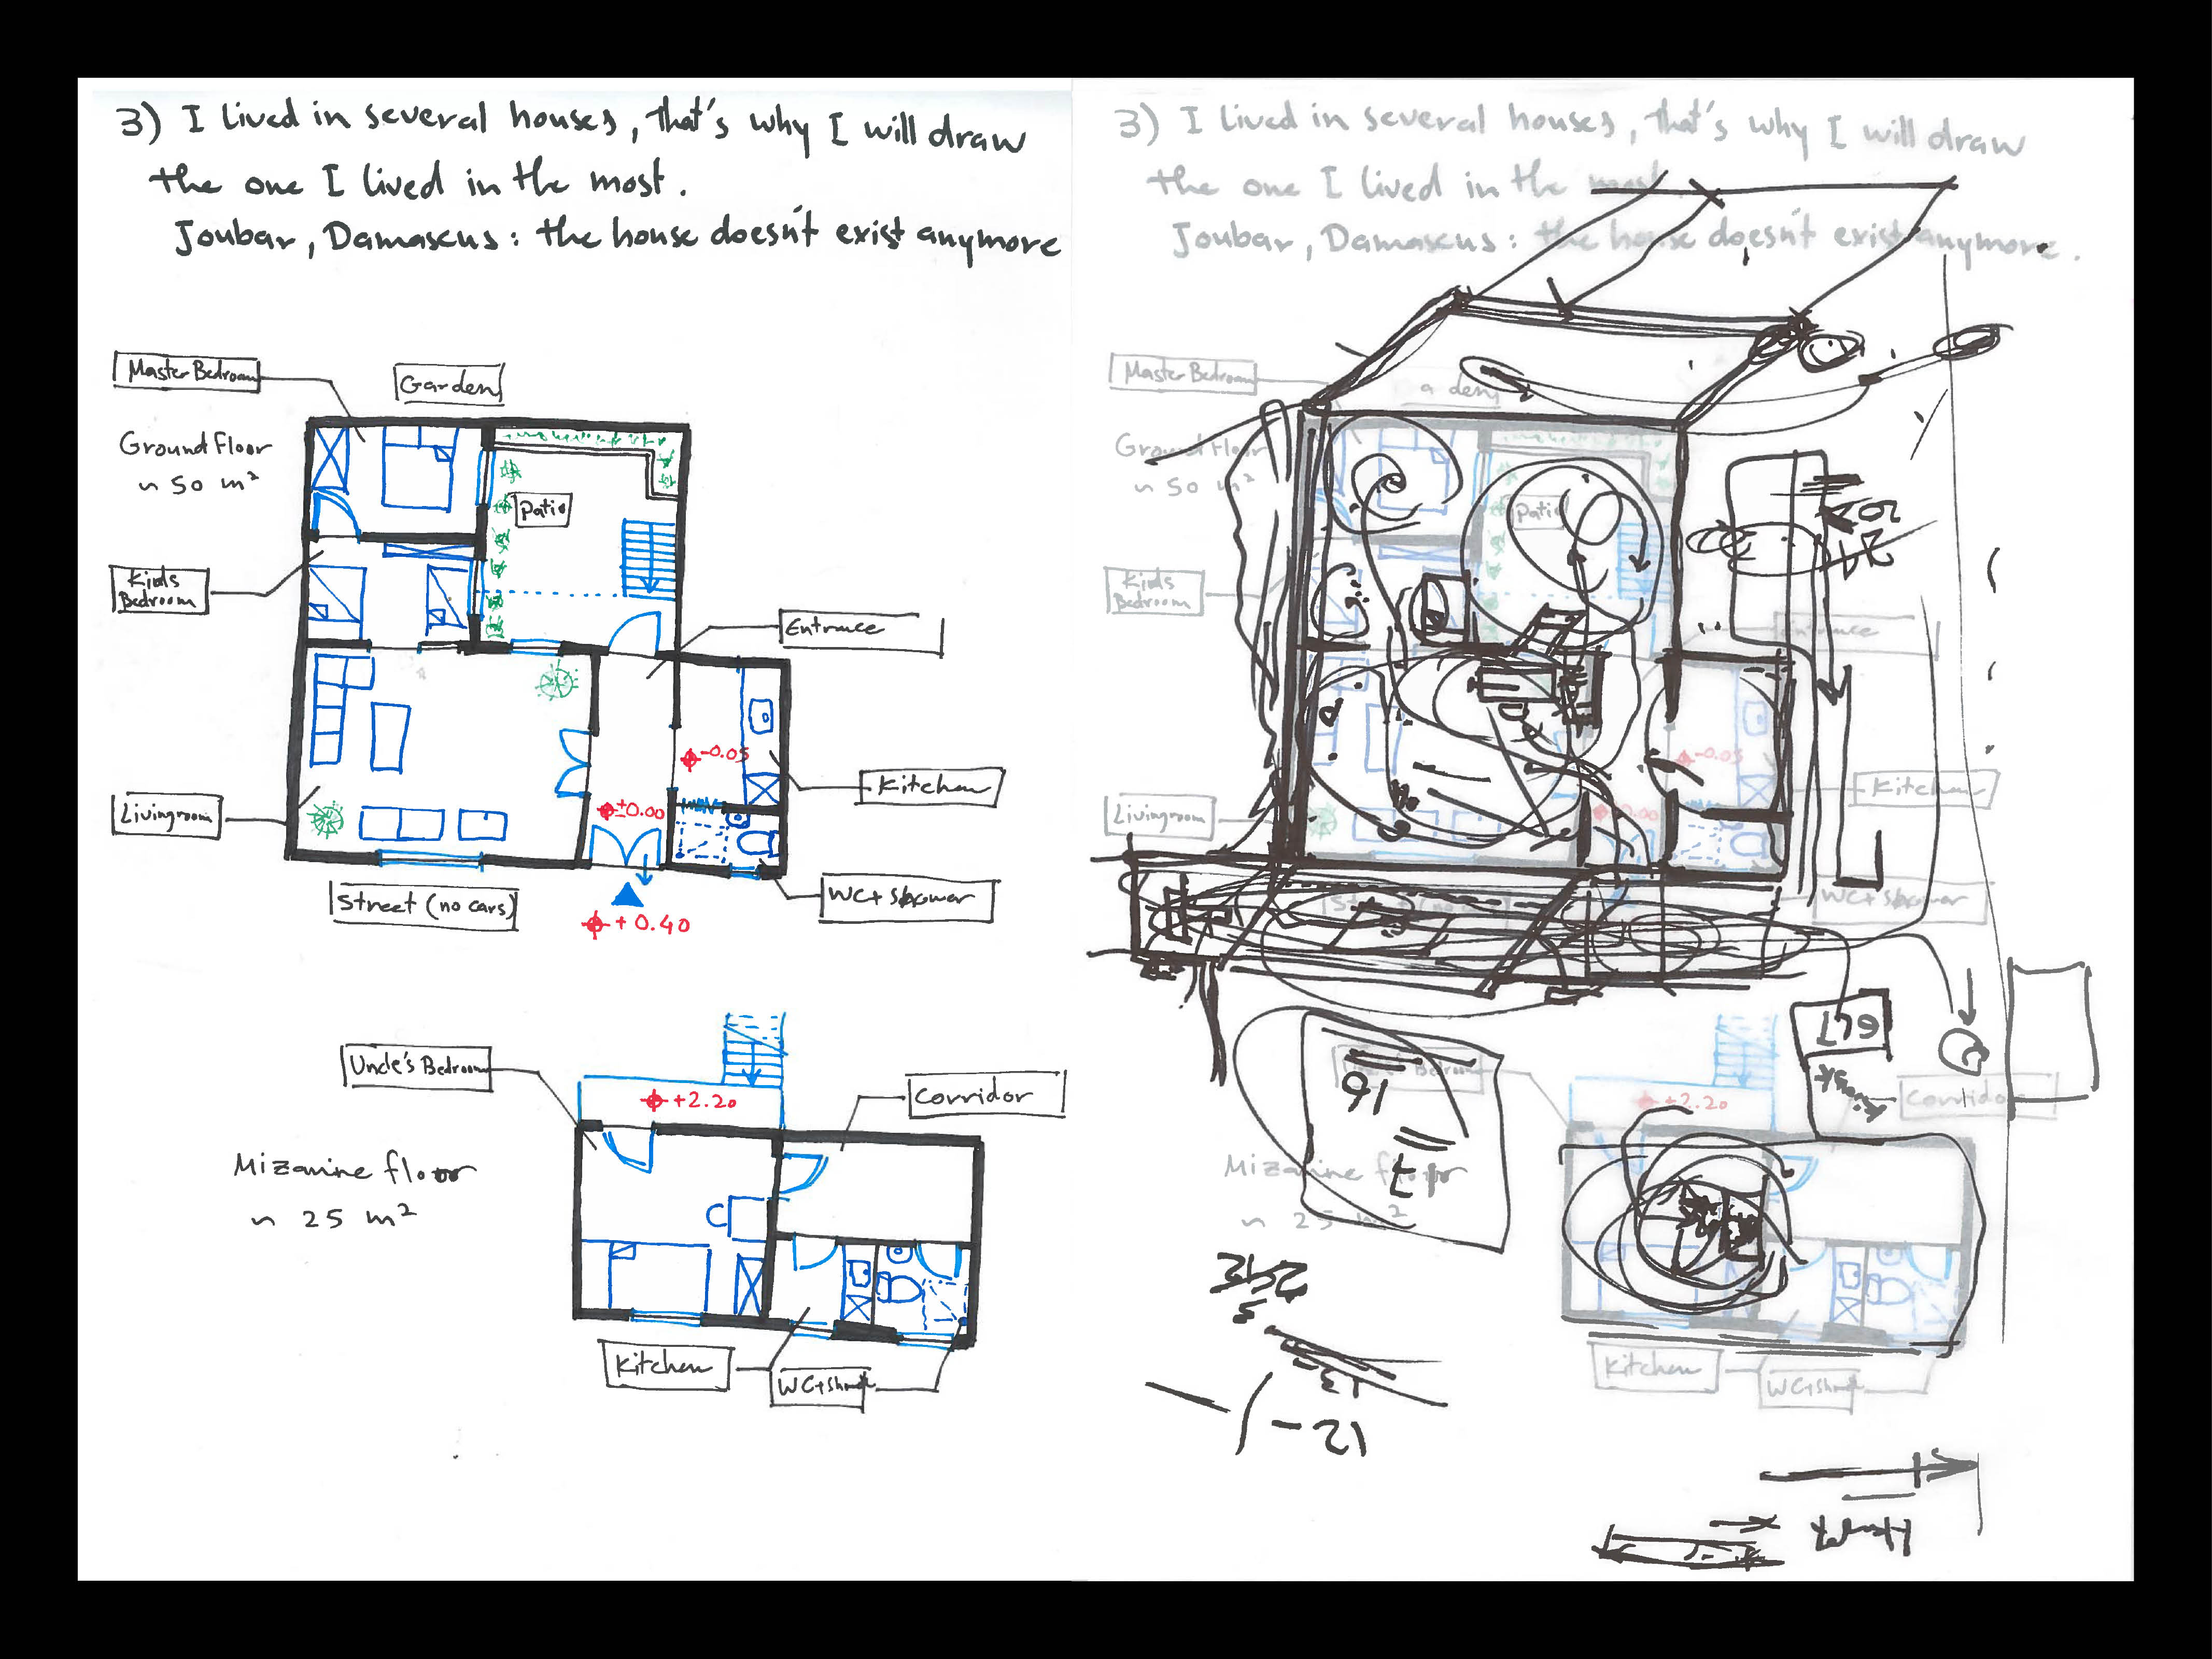 3) I lived in several houses, that's why I will draw
the one I lived in the most.
Joubar, Damascus: the house doesn't exist anymore
Master Bedroom
Garden
Ground Floor
~ 50 m²
Patio
Kids
Bedroom
Entrance
-0.05
Kitchen
±0.00
Livingroom
Street (no cars)
WC+Shower
+0.40
Uncle's Bedroom
+2.20
Corridor
Mizanine floor
~ 25 m²
Kitchen
3) I lived in several houses, that's why I will draw
the one I lived in the most
Joubar, Damascus: the house doesn't exist anymore.
Master Bedroom
Ground Floor
~ 50 m²
Patio
Kids
Bedroom
-0.05
Kitchen
Livingroom
WC+Shower
16
+2.20
Corridor
Mizanine floor
~ 25 m²
Kitchen